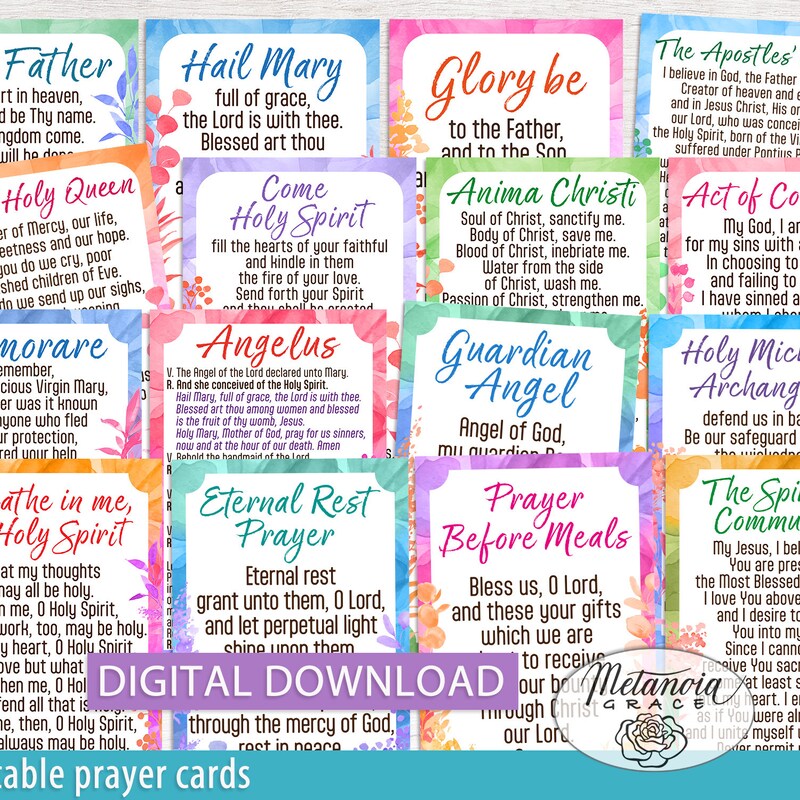 Father
rt in heaven,
d be Thy name.
ngdom come.
will be done
Hail Mary
full of grace,
the Lord is with thee.
Blessed art thou
Glory be
to the Father,
and to the Son
The Apostles'
I believe in God, the Father
Creator of heaven and e
and in Jesus Christ, His on
our Lord, who was conceiv
the Holy Spirit, born of the Vi
suffered under Pontius P
Holy Queen
er of Mercy, our life,
eetness and our hope.
you do we cry, poor
shed children of Eve.
do we send up our sighs,
Come
Holy Spirit
fill the hearts of your faithful
and kindle in them
the fire of your love.
Send forth your Spirit
and they shall be created
Anima Christi
Soul of Christ, sanctify me.
Body of Christ, save me.
Blood of Christ, inebriate me.
Water from the side
of Christ, wash me.
Passion of Christ, strengthen me.
Act of Co
My God, I am
for my sins with a
In choosing to
and failing to
I have sinned a
whom I shou
morare
emember,
cious Virgin Mary,
er was it known
anyone who fled
our protection,
red your help
Angelus
V. The Angel of the Lord declared unto Mary.
R. And she conceived of the Holy Spirit.
Hail Mary, full of grace, the Lord is with thee.
Blessed art thou among women and blessed
is the fruit of thy womb, Jesus.
Holy Mary, Mother of God, pray for us sinners,
now and at the hour of our death. Amen
V. Behold the handmaid of the Lord
Guardian
Angel
Angel of God,
my guardian
Holy Mich
Archang
defend us in ba
Be our safeguard
the wickedne
athe in me,
Holy Spirit
at my thoughts
may all be holy.
n me, O Holy Spirit,
work, too, may be holy.
y heart, O Holy Spirit,
ove but what
hen me, O Holy
fend all that is
e, then, O Holy Spirit,
always may be holy.
Eternal Rest
Prayer
Eternal rest
grant unto them, O Lord,
and let perpetual light
shine upon them
through the mercy of God,
rest in peace
Prayer
Before Meals
Bless us, O Lord,
and these your gifts
which we are
to receive
our
Through Christ
our Lord.
The Spi
Commu
My Jesus, I bel
You are pres
the Most Blessed
I love You above
and I desire to
You into my
Since I cannot
receive You sacr
at least s
my heart. I e
as if You were al
and I unite myself
Never permit
DIGITAL DOWNLOAD
Metanoia
GRACE
table prayer cards